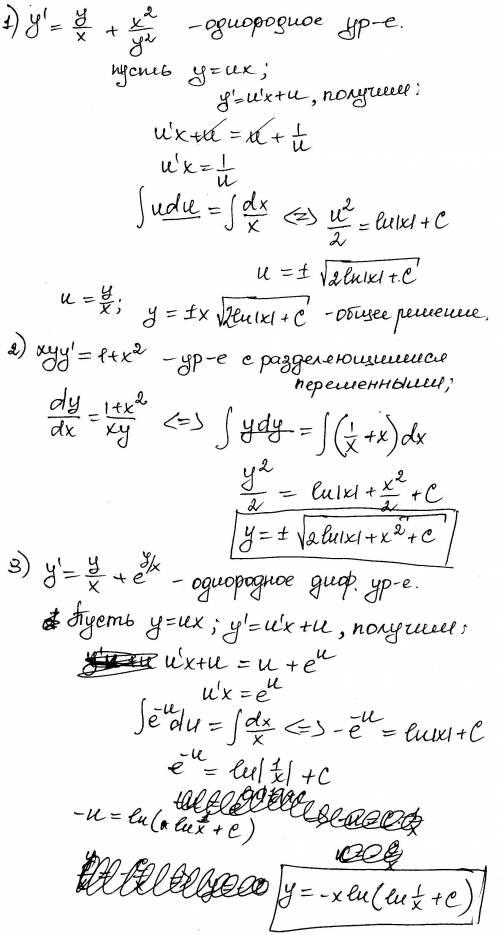 1) y' = y/x + x²/y² - однородное ур-е.
пусть y=ux;
y'=u'x+u, получим:
u'x+u = u + 1/u
u'x = 1/u
∫udu = ∫dx/x <=> u²/2 = ln|x| + C
u = ± √(2ln|x| + C)
u = y/x; y = ±x √(2ln|x| + C) - общее решение.
2) xyy' = 1+x² - ур-е с разделяющимися
переменными;
dy/dx = (1+x²)/xy <=> ∫ydy = ∫(1/x + x)dx
y²/2 = ln|x| + x²/2 + C
y = ± √(2ln|x| + x² + C)
3) y' = y/x + e^(y/x) - однородное диф. ур-е.
Пусть y=ux; y'=u'x+u, получим:
u'x+u = u + e^u
u'x = e^u
∫e^(-u)du = ∫dx/x <=> -e^(-u) = ln|x| + C
e^(-u) = ln|1/x| + C
-u = ln(ln 1/x + C)
y = -x ln(ln 1/x + C)